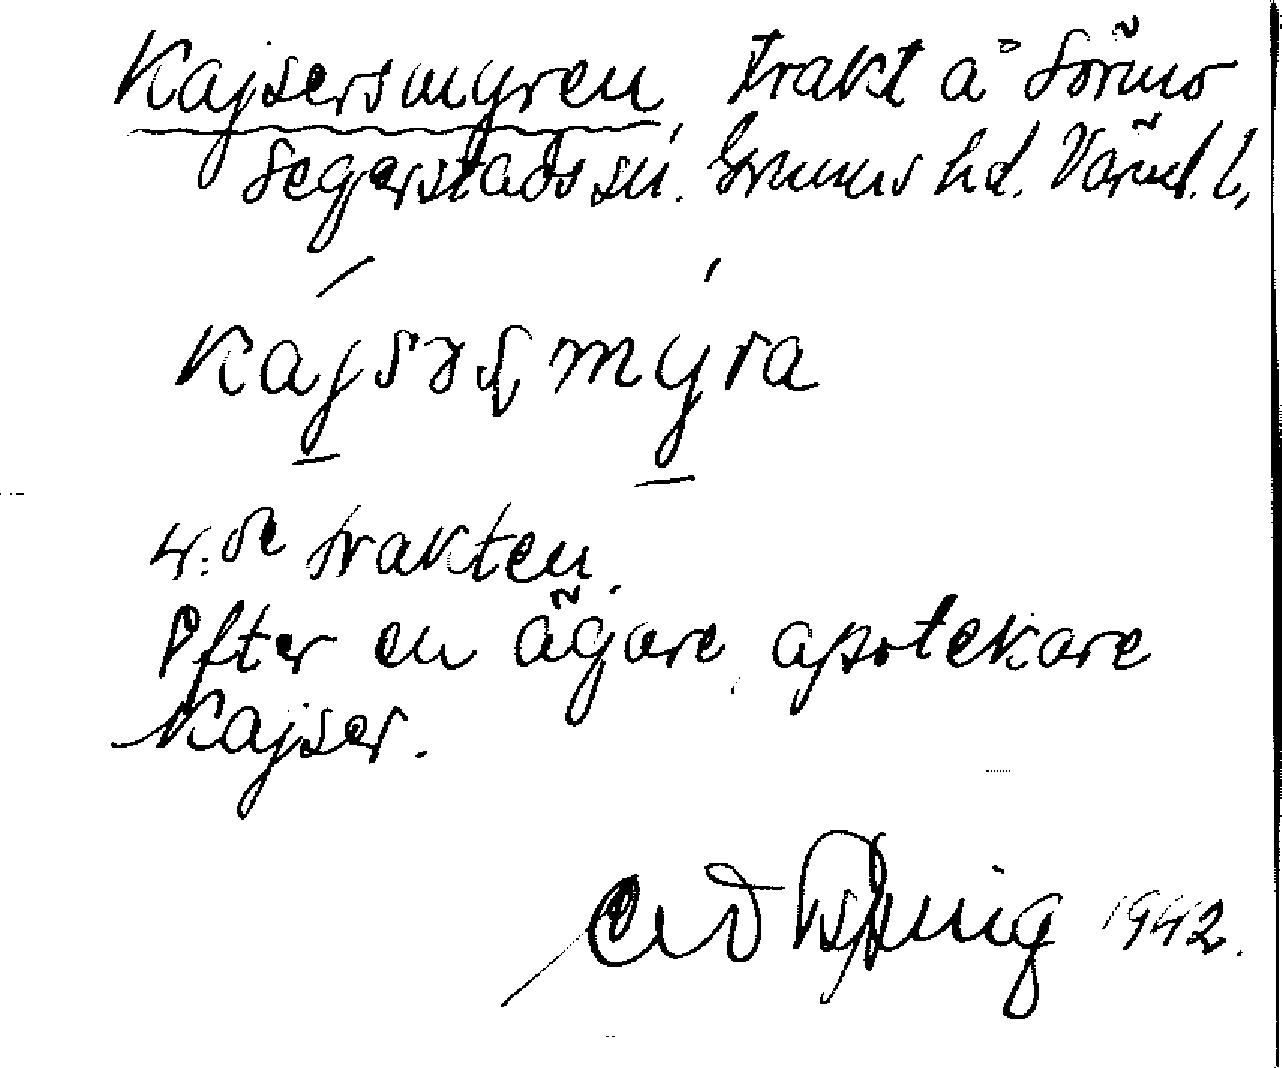 Kajsersmyren, trakt å Sörmo
Segerstads sn. Grums hd. Värml. l.
kajsəʂmyra
4: de trakten.
Efter en ägare, apotekare
Kajser.
1942.